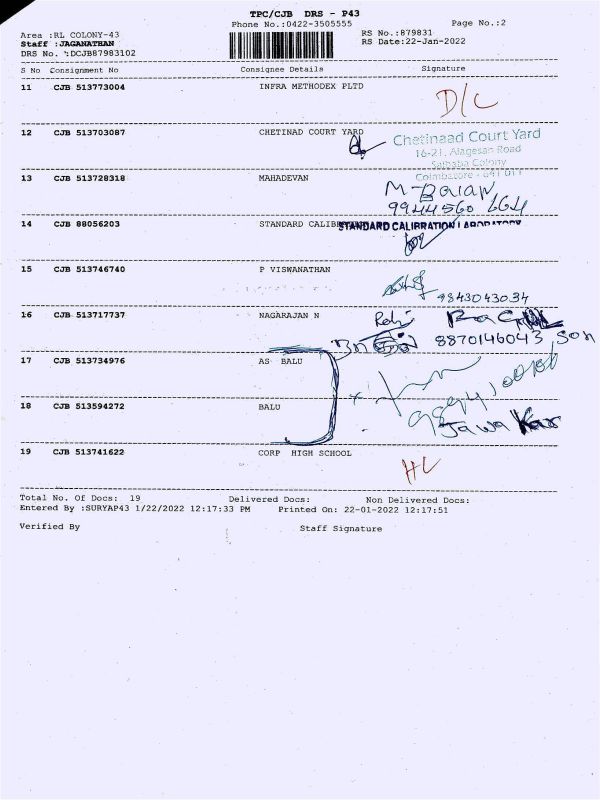 TPC/CJB DRS - P43
Phone No.:0422-3505555
Page No.:2
Area :RL COLONY-43
RS No.:879831
Staff :JAGANATHAN
RS Date:22-Jan-2022
DRS No. :DCJB87983102
S No Consignment No Consignee Details Signature
11 CJB 513773004 INFRA METHODEX PLTD
D/C
12 CJB 513703087 CHETINAD COURT YARD
Chetinaad Court Yard
16-21, Alagesan Road
Saibaba Colony
Coimbatore - 641 011
13 CJB 513728318 MAHADEVAN
M-Balan
9944560 664
14 CJB 88056203 STANDARD CALIB
STANDARD CALIBRATION LABORATORY
15 CJB 513746740 P VISWANATHAN
9843043034
16 CJB 513717737 NAGARAJAN N
8870146043 Son
17 CJB 513734976 AS BALU
18 CJB 513594272 BALU
Jawa Kar
19 CJB 513741622 CORP HIGH SCHOOL
HL
Total No. Of Docs: 19 Delivered Docs: Non Delivered Docs:
Entered By :SURYAP43 1/22/2022 12:17:33 PM Printed On: 22-01-2022 12:17:51
Verified By Staff Signature